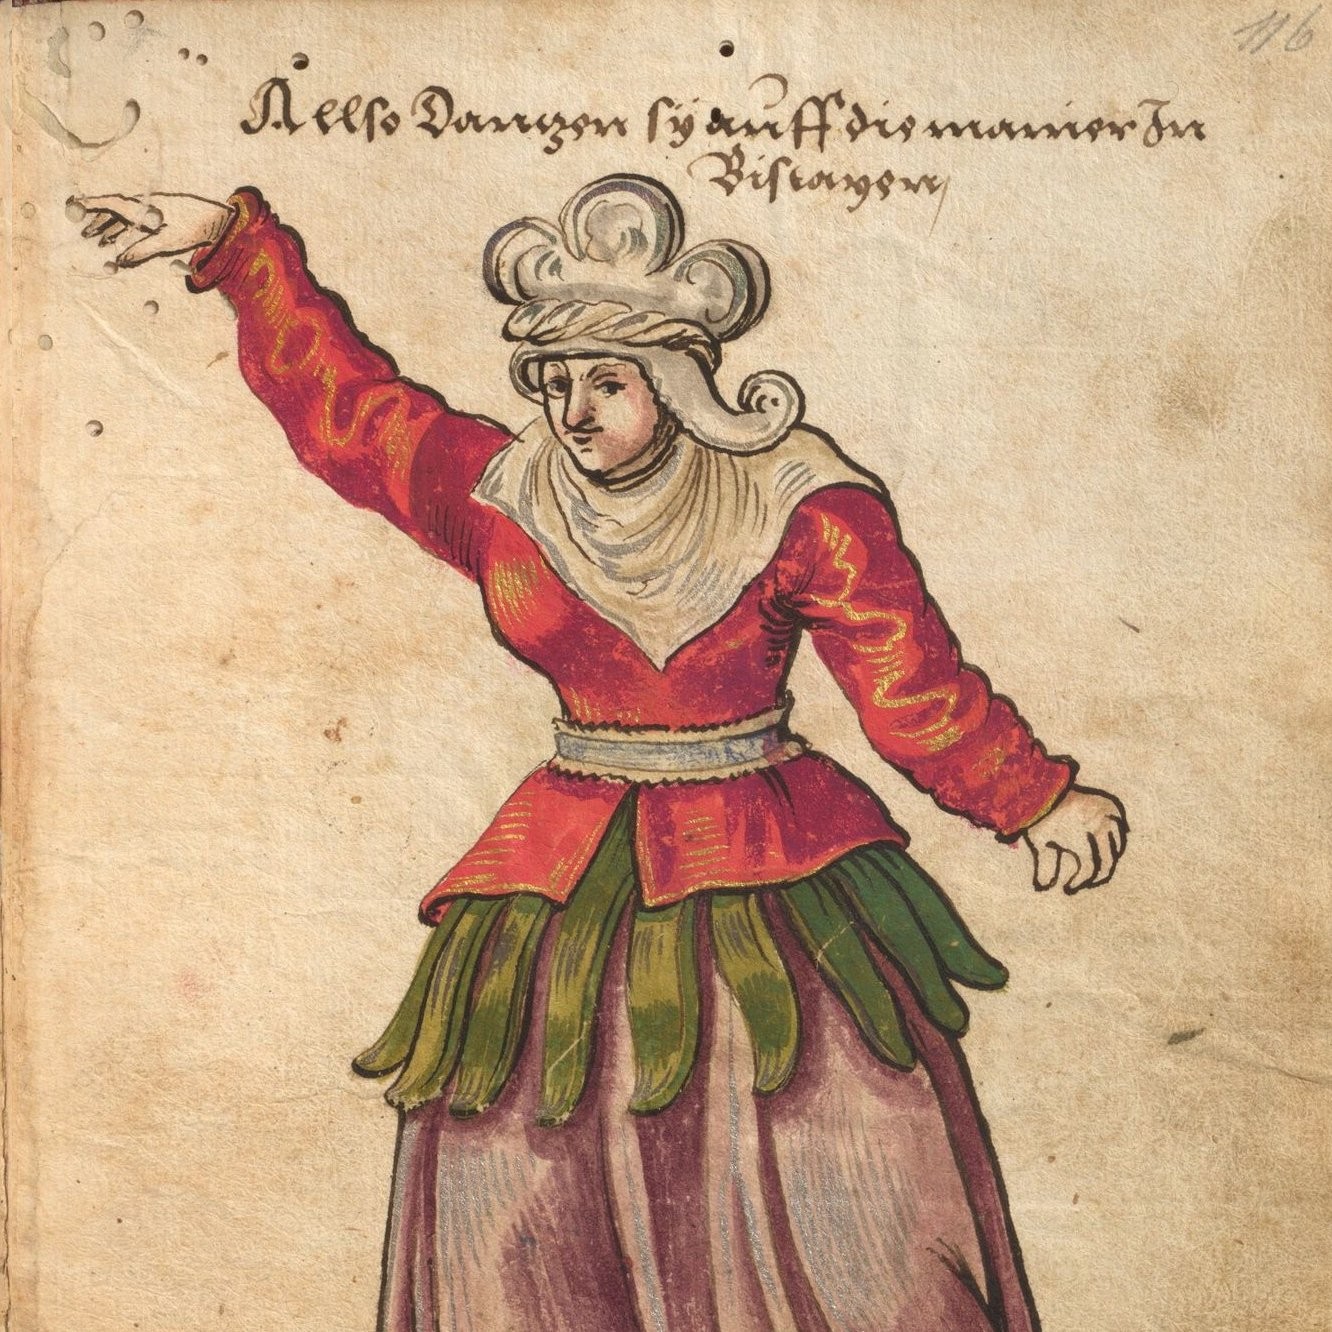 116
Allso Dantzen sÿ auff die manier In
Biscayen